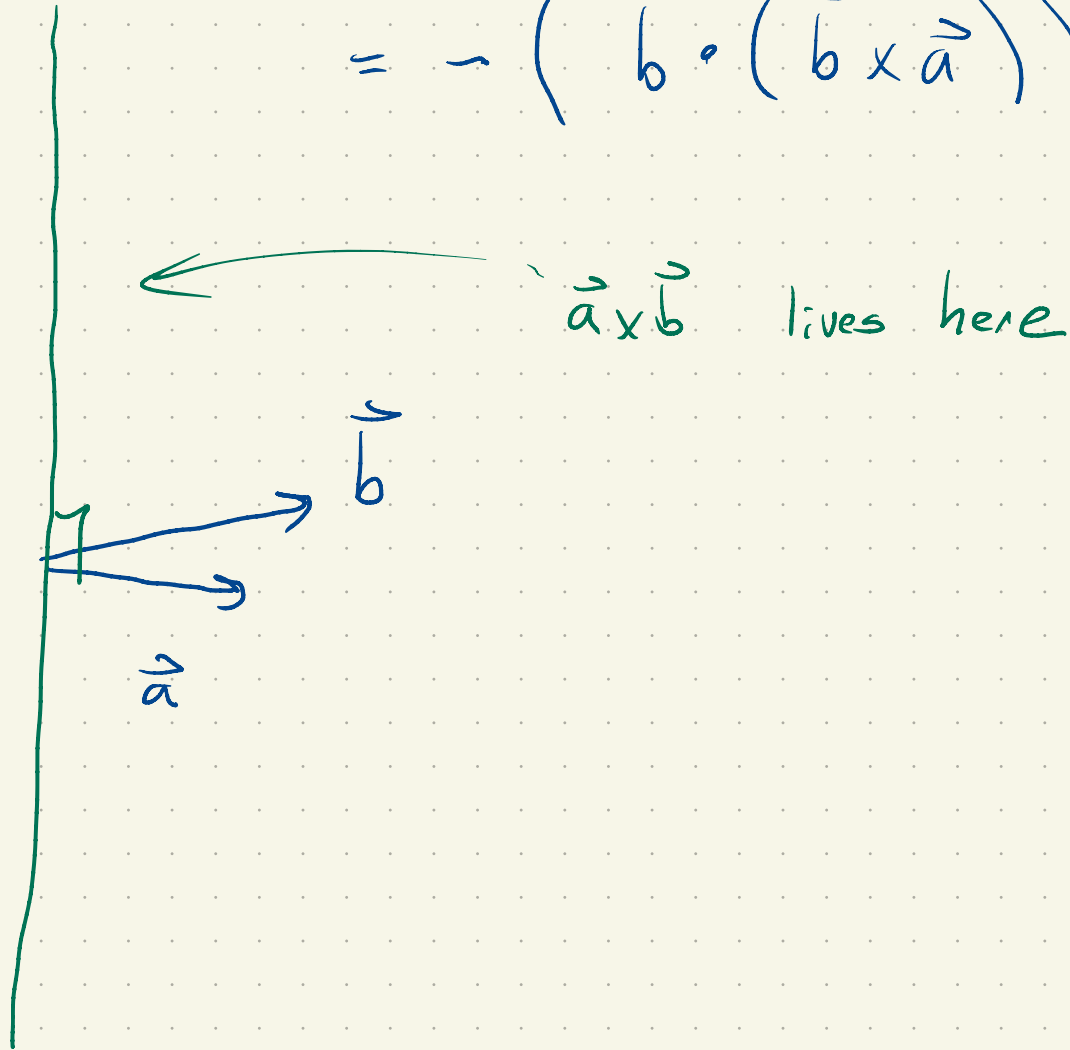 = - ( b • ( b × a⃗ ) )
a⃗ × b⃗ lives here
b⃗
a⃗